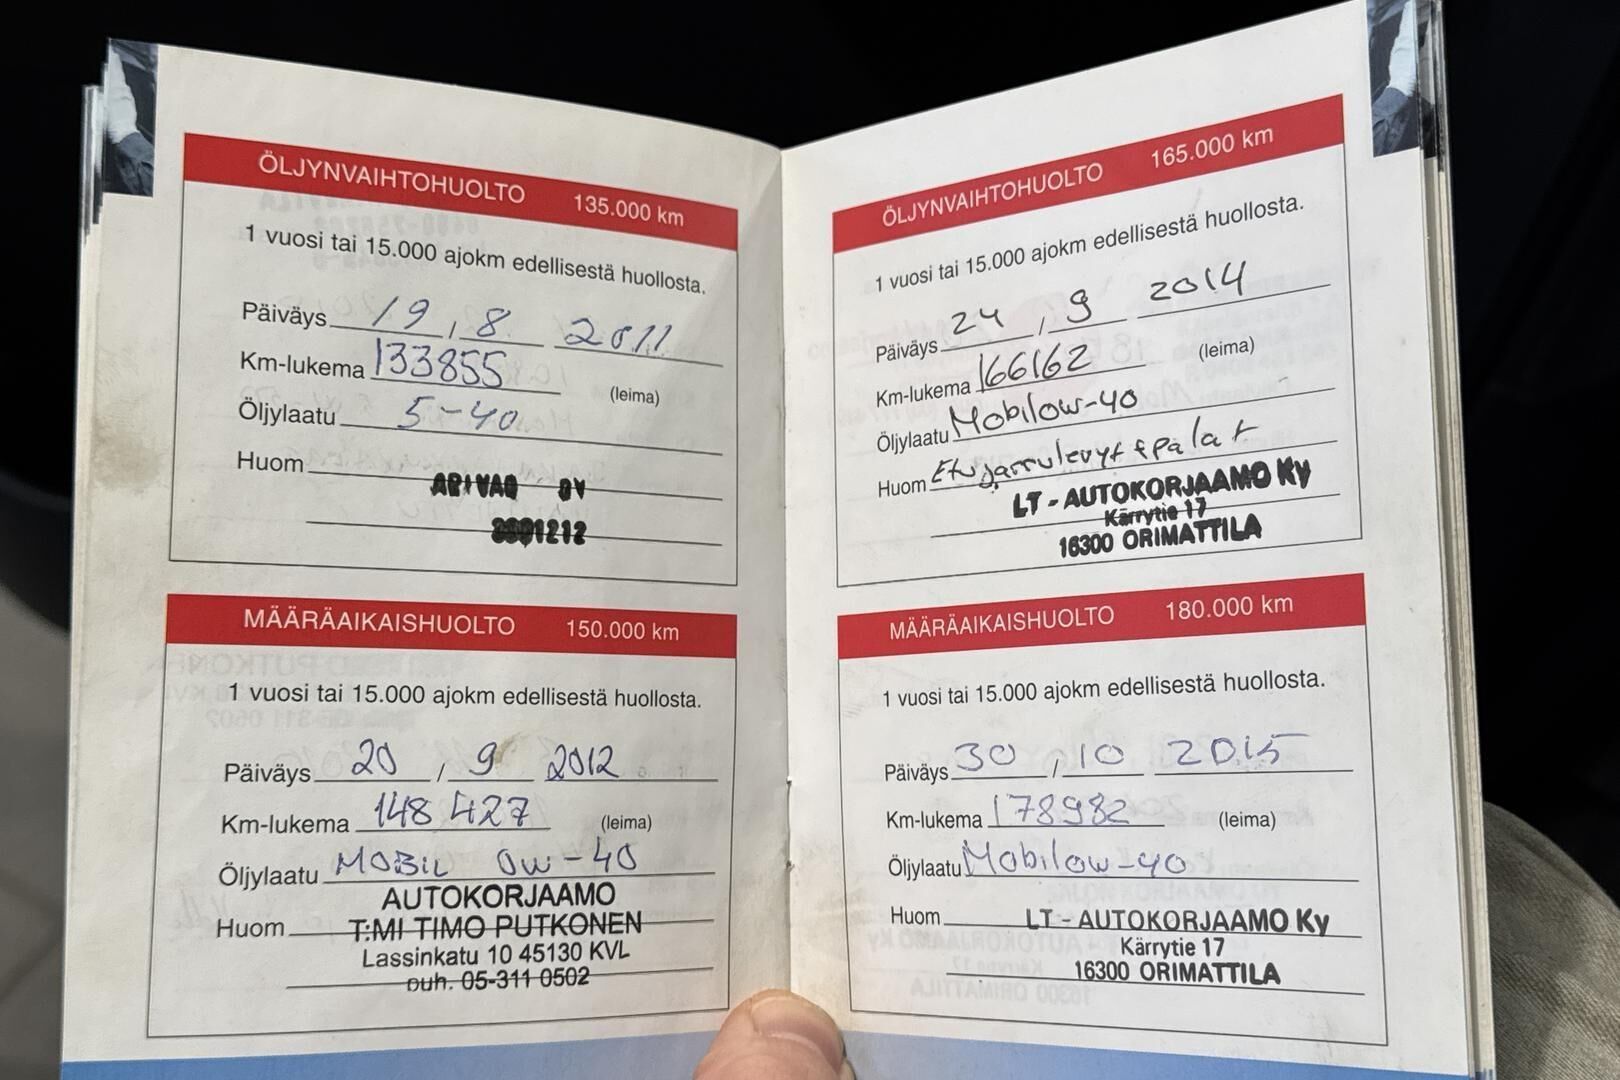 ÖLJYNVAIHTOHUOLTO 135.000 km
1 vuosi tai 15.000 ajokm edellisestä huollosta.
Päiväys 19 / 8 2011
Km-lukema 133855 (leima)
Öljylaatu 5-40
Huom
MÄÄRÄAIKAISHUOLTO 150.000 km
1 vuosi tai 15.000 ajokm edellisestä huollosta.
Päiväys 20 / 9 2012
Km-lukema 148 427 (leima)
Öljylaatu MOBIL 0W-40
AUTOKORJAAMO
Huom T:MI TIMO PUTKONEN
Lassinkatu 10 45130 KVL
puh. 05-311 0502
ÖLJYNVAIHTOHUOLTO 165.000 km
1 vuosi tai 15.000 ajokm edellisestä huollosta.
Päiväys 24 / 9 2014
Km-lukema 166162 (leima)
Öljylaatu Mobil0w-40
Huom Etujarrulevyt + palat
LT - AUTOKORJAAMO Ky
Kärrytie 17
16300 ORIMATTILA
MÄÄRÄAIKAISHUOLTO 180.000 km
1 vuosi tai 15.000 ajokm edellisestä huollosta.
Päiväys 30 / 10 2015
Km-lukema 178982 (leima)
Öljylaatu Mobil0w-40
Huom LT - AUTOKORJAAMO Ky
Kärrytie 17
16300 ORIMATTILA